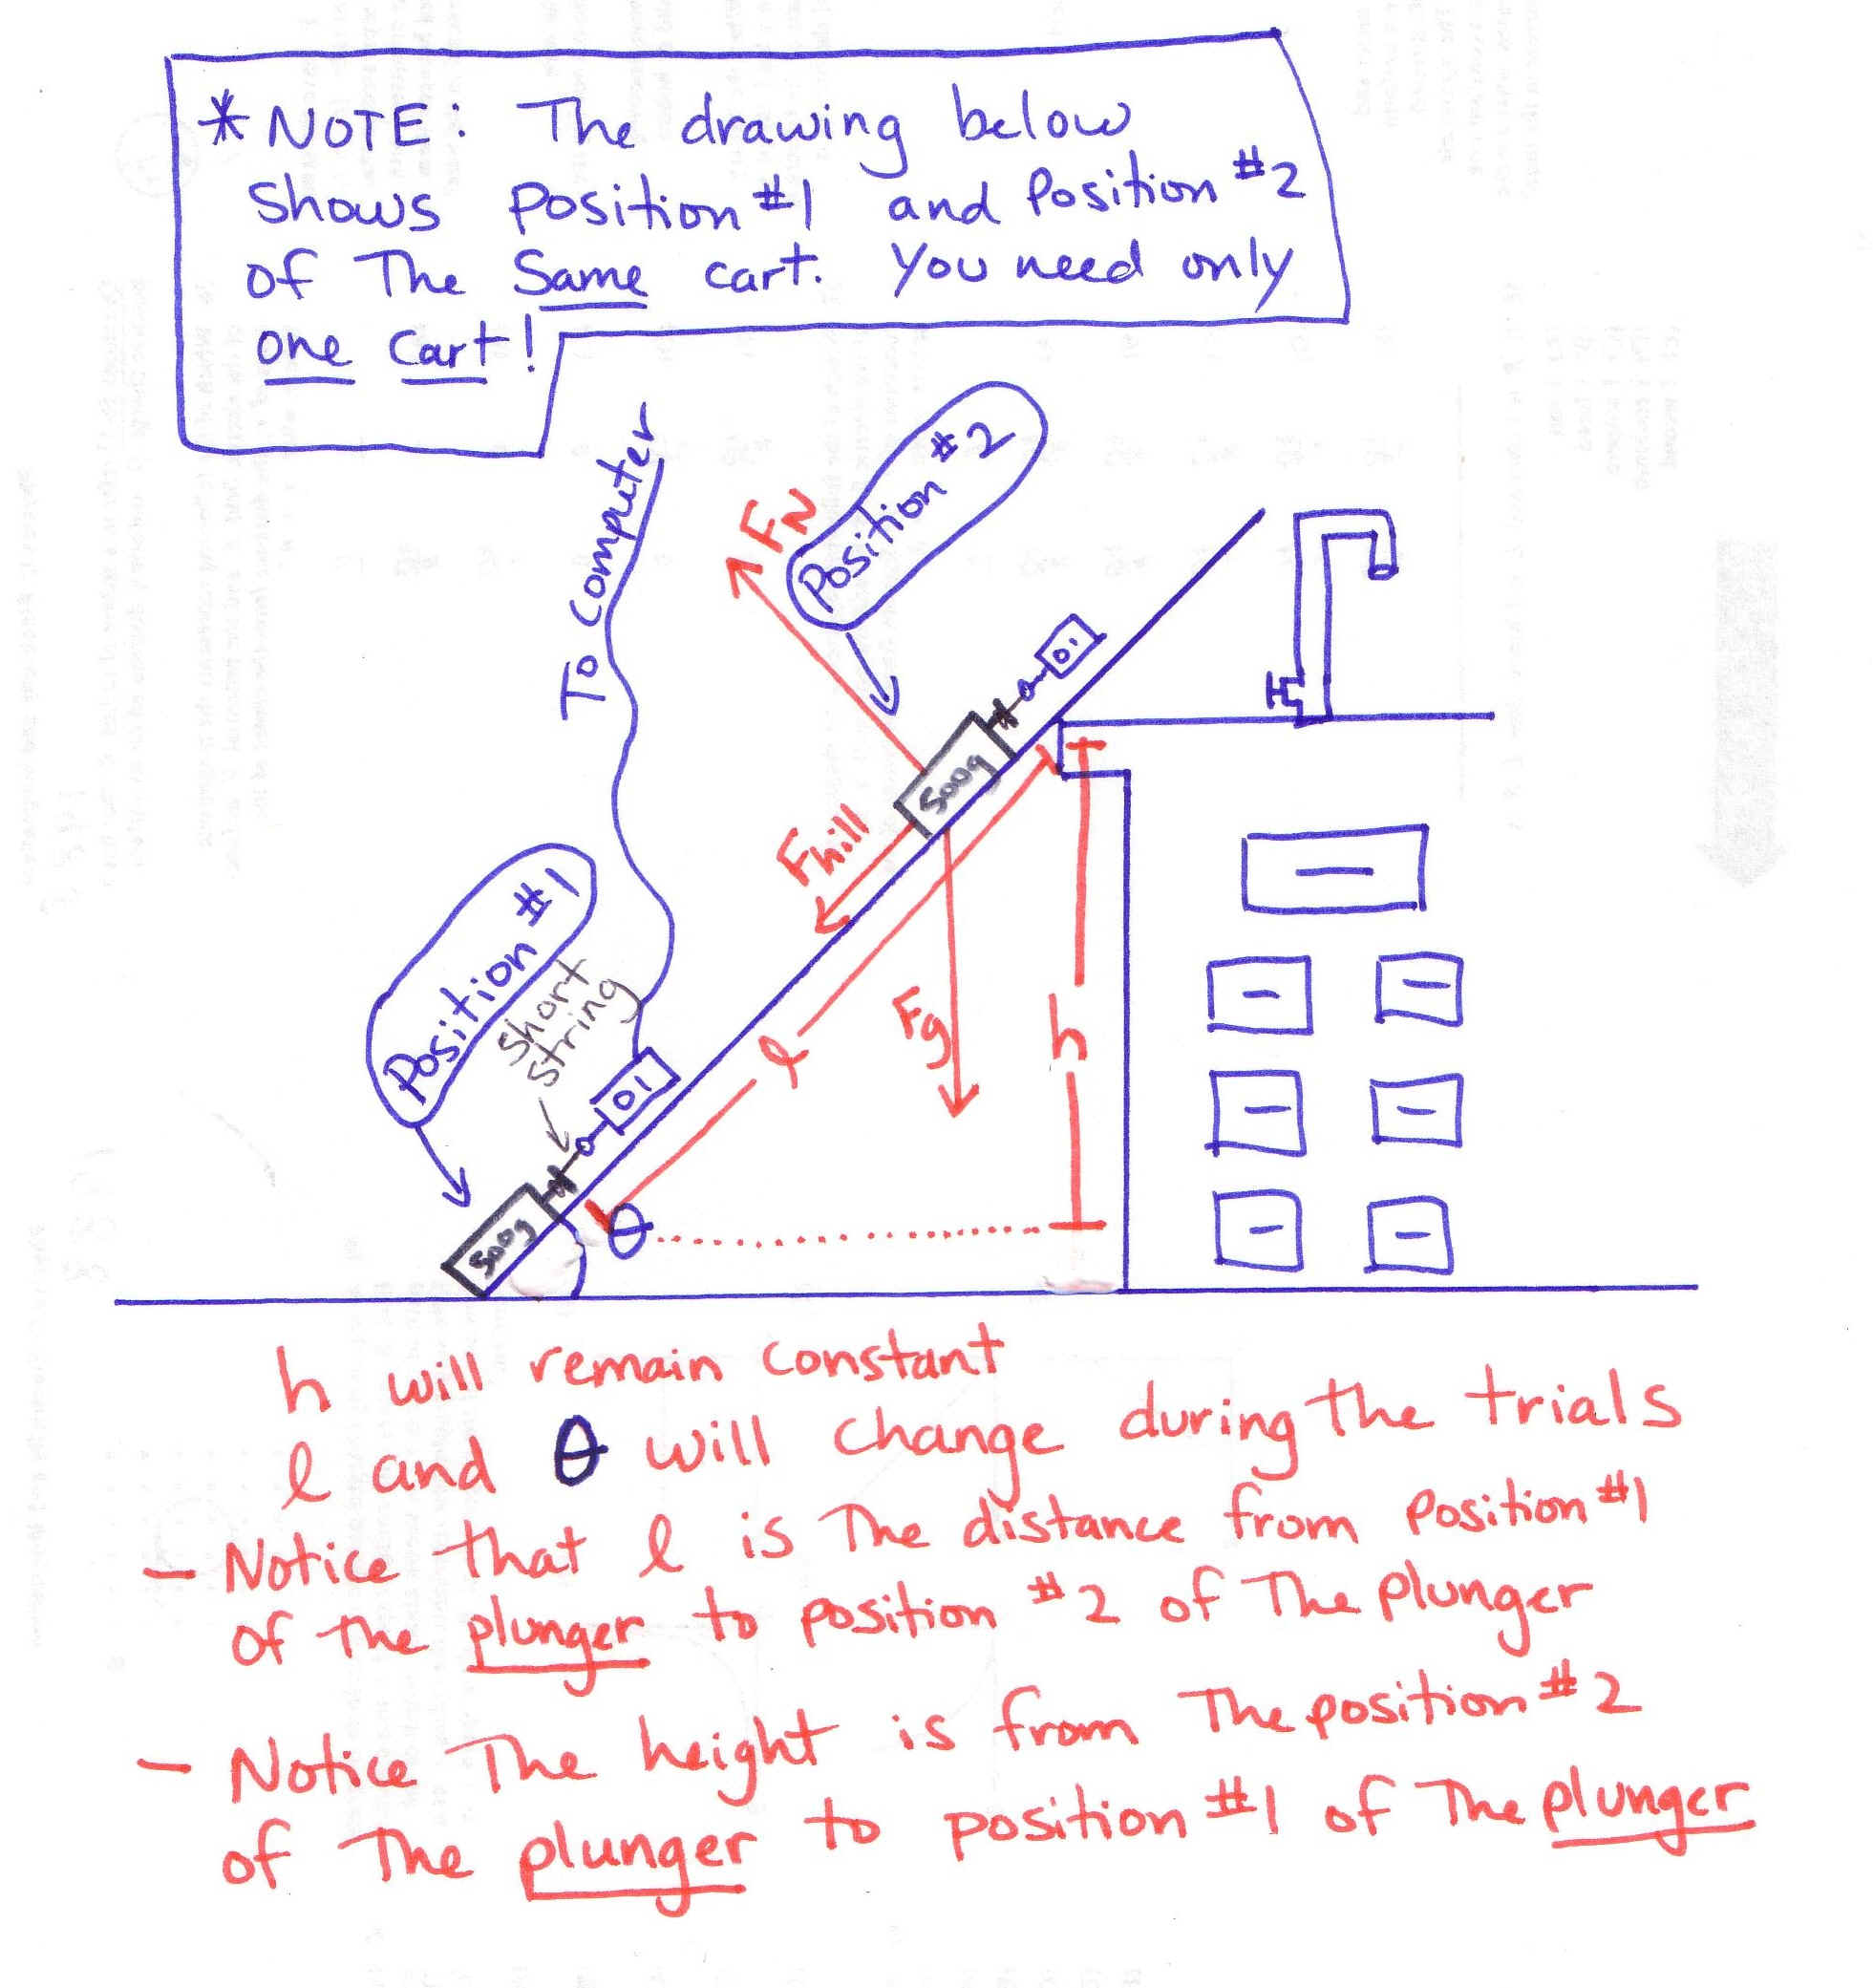 * NOTE: The drawing below
shows position #1 and Position #2
of The Same cart. You need only
one cart!
To Computer
FN
Position #2
01
500g
Fhill
Position #1
short
string
Fg
h
l
01
500g
θ
h will remain constant
l and θ will change during the trials
- Notice that l is The distance from position #1
of the plunger to position #2 of The plunger
- Notice The height is from The position #2
of The plunger to position #1 of The plunger